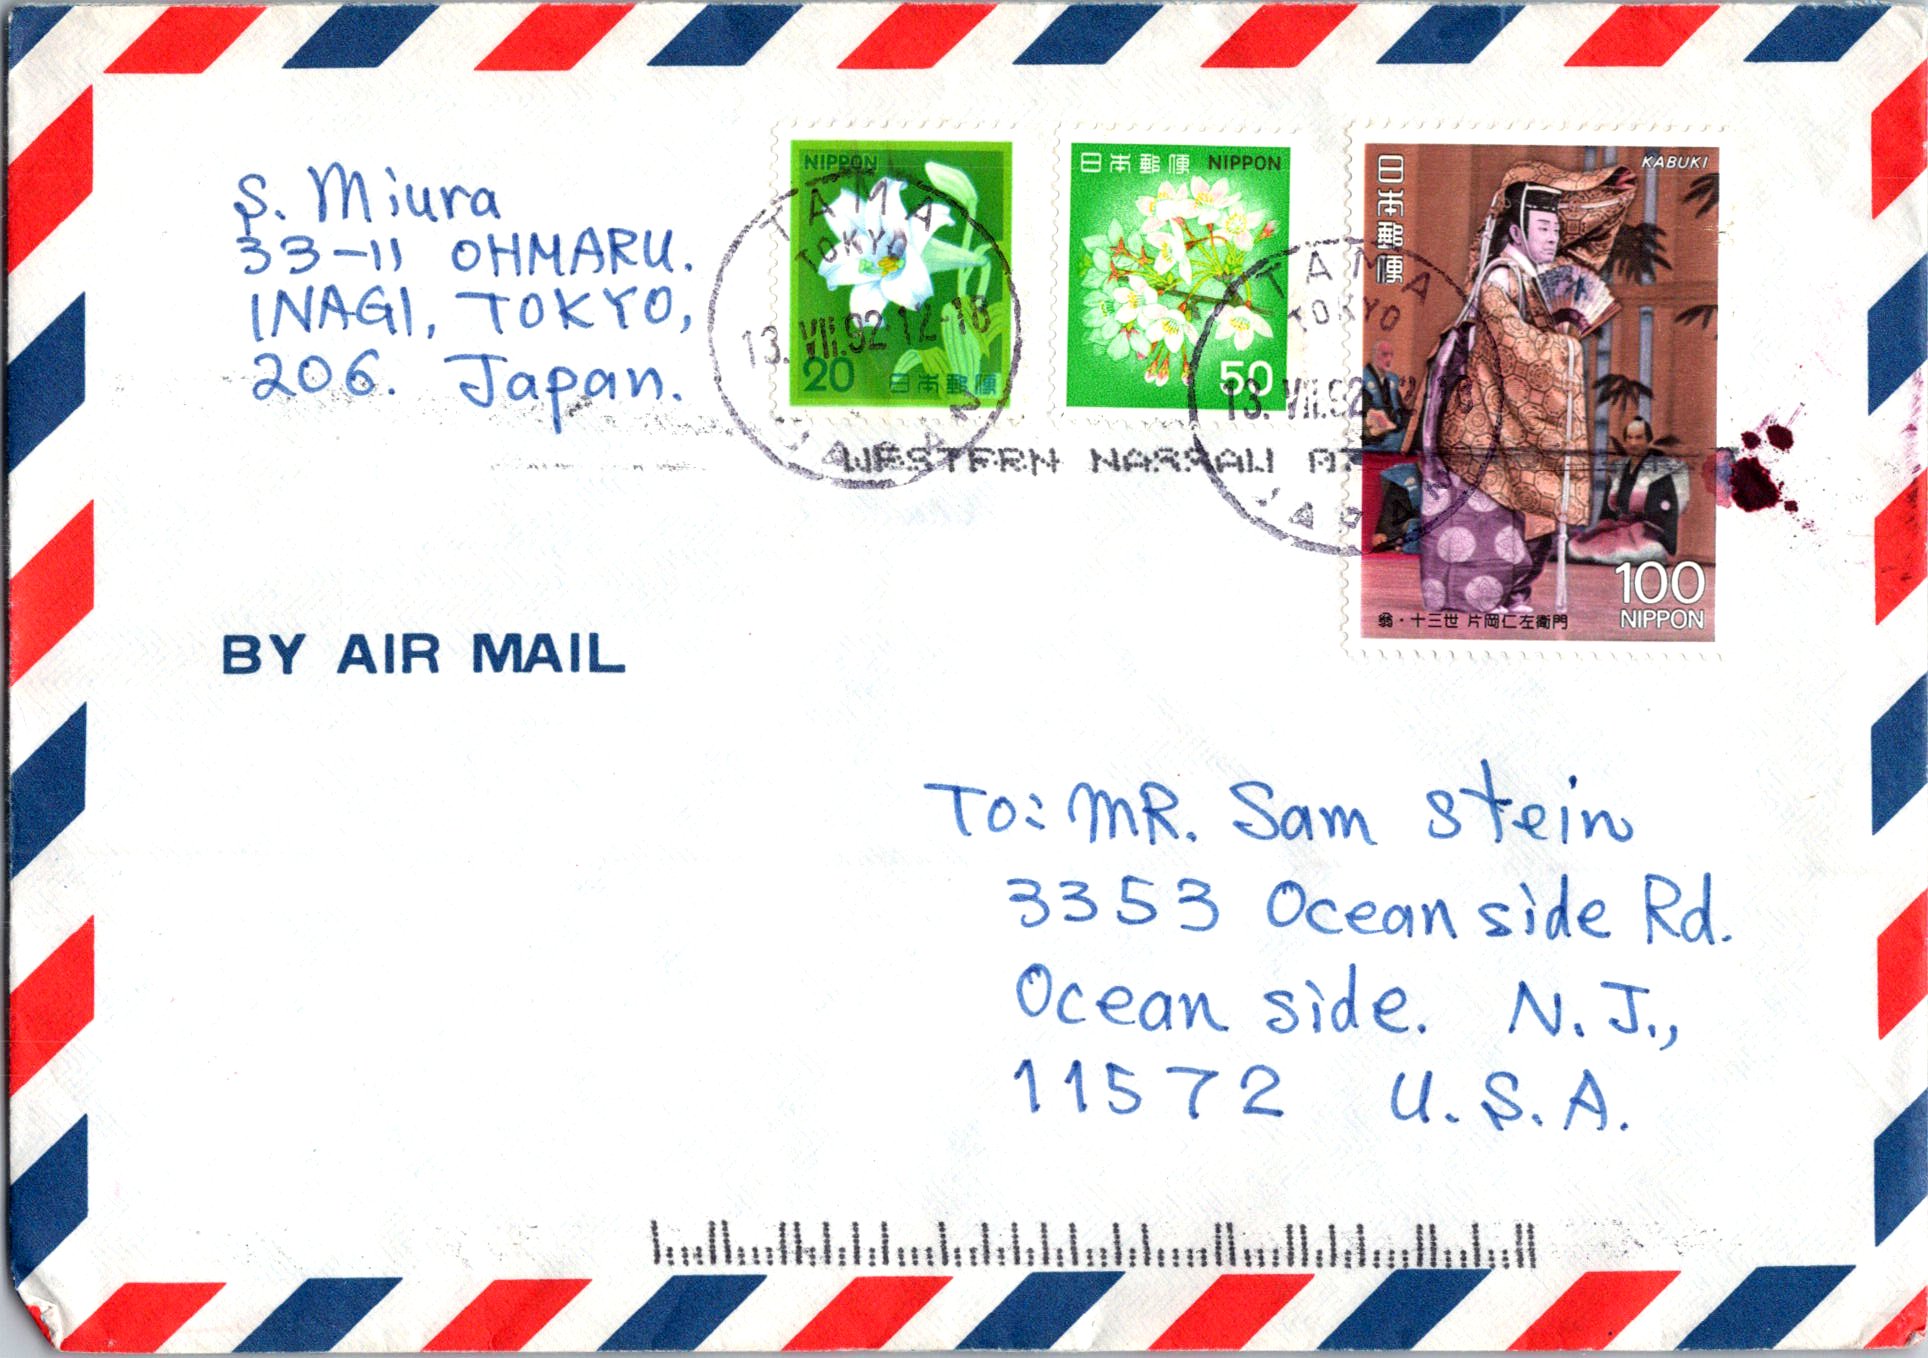 S. Miura
33-11 OHMARU.
INAGI, TOKYO,
206. Japan.
NIPPON
20
日本郵便
日本郵便 NIPPON
50
日本郵便
KABUKI
100
NIPPON
翁・十三世 片岡仁左衛門
TAMA
TOKYO
13.VII.92 12-18
JAPAN
TAMA
TOKYO
13.VII.92 12-18
JAPAN
WESTERN NASSAU
BY AIR MAIL
To: MR. Sam Stein
3353 Ocean side Rd.
Ocean side. N.J.,
11572 U.S.A.